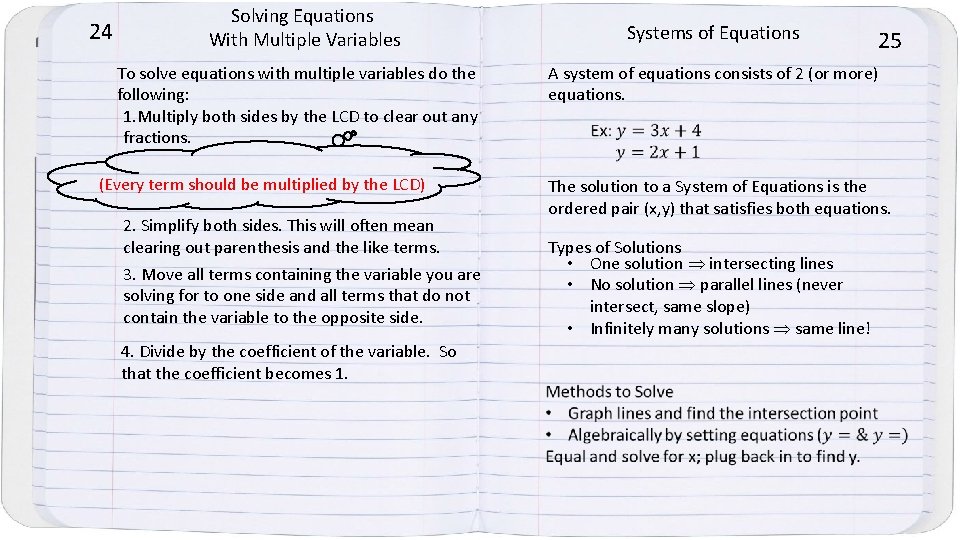 24
Solving Equations
With Multiple Variables
To solve equations with multiple variables do the
following:
1. Multiply both sides by the LCD to clear out any
fractions.
(Every term should be multiplied by the LCD)
2. Simplify both sides. This will often mean
clearing out parenthesis and the like terms.
3. Move all terms containing the variable you are
solving for to one side and all terms that do not
contain the variable to the opposite side.
4. Divide by the coefficient of the variable. So
that the coefficient becomes 1.
Systems of Equations
25
A system of equations consists of 2 (or more)
equations.
Ex: y = 3x + 4
y = 2x + 1
The solution to a System of Equations is the
ordered pair (x, y) that satisfies both equations.
Types of Solutions
• One solution ⇒ intersecting lines
• No solution ⇒ parallel lines (never
intersect, same slope)
• Infinitely many solutions ⇒ same line!
Methods to Solve
• Graph lines and find the intersection point
• Algebraically by setting equations (y = & y =)
Equal and solve for x; plug back in to find y.